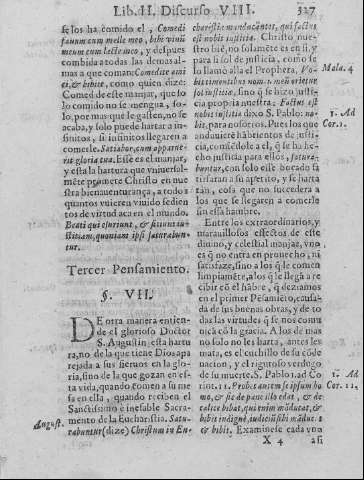 Lib. II. Discurso VIII. 327
se los ha comido el, Comedi
fauum cum melle meo, bibi vinũ
meum cum lacte meo, y despues
combida a todas las demas al-
mas a que coman: Comedite ami-
ci, & bibite, como quien dize:
Comed de este manjar, que so-
lo comido no se mengua, so-
lo, por mas que le gasten, no se
acaba, y solo puede hartar a in-
finitos, si infinitos llegaren a
comerle. Satiabor, cum apparue-
rit gloria tua. Esse es el manjar,
y esta la hartura que vniuersal-
mẽte promete Christo en nues-
tra bienauenturança, a todos
quantos vuieren viuido sedien-
tos de virtud aca en el mundo.
Beati qui esuriunt, & sitiunt iu-
stitiam, quoniam ipsi saturabun-
tur.
Tercer Pensamiento.
§. VII.
DE otra manera entien-
de el glorioso Doctor
S. Augustin esta hartu
ra, no de la que tiene Dios apa
rejada a sus sieruos en la glo-
ria, sino de la que gozan en es-
ta vida, quando comen a su me
sa en ella, quando reciben el
Sanctissimo è inefable Sacra-
mento de la Eucharistia. Satu-
August.
rabuntur (dize) Christum in Eu-
charistie manducantes, qui factus
est nobis iustitia. Christo nue-
stro biẽ, no solamẽte es en si, y
para si la justicia, como se
lo llamó alla el Propheta, Vo-
Mala. 4
bis timentibus nomen meũ orietur
sol iustitiæ, sino q̃ se hizo justi-
cia propria nuestra: Factus est
nobis iustitia dixo S. Pablo: na-
1. Ad
Cor. 1.
bit, para nosotros. Pues los que
anduuierẽ hãbrientos de justi-
cia, comiẽdole a el, q̃ se ha he-
cho justicia para ellos, satura-
buntur, con solo esse bocado sa
tisfaran a su apetito, y se harta
ran, cosa que no succedera a
los que se llegaren a comerle
sin essa hambre.
Entre los extraordinarios, y
marauillosos effectos de este
diuino, y celestial manjar, vno
es q̃ no entra en prouecho, ni
satisfaze, sino a los q̃ le comen
limpiamẽte, a los q̃ le llegã a re
cibir cõ el hãbre, q̃ deziamos
en el primer Pẽsamiẽto, causa-
da de sus buenas obras, y de to
das las virtudes q̃ se nos comu
nicã cõ la gracia. A los de mas
no solo no les harta, antes les
mata, es el cuchillo de su cõde
nacion, y el riguroso verdugo
de su muerte. S. Pablo 1. ad Co
1. Ad
Cor. 11.
riot. 11. Probet autem se ipsum ho
mo, & sic de pane illo edat, & de
calice bibat, qui enim mãducat, &
bibit indigne, iudiciũ sibi mãducat
& bibit. Examinese cada vno
X 4 asi